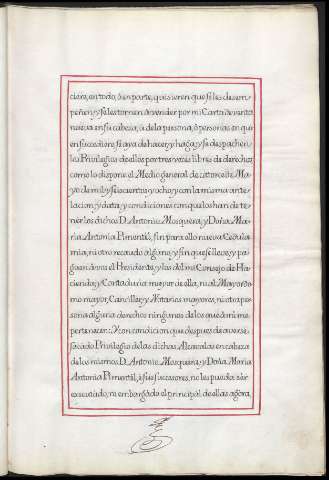 clara, en todo, ò en parte, quisieren que se les desem-
peñen, y se les tornen à vender por mi Carta de venta
nueva en su cabeza, ò de la persona, ò personas en que
en su
se haya de hacer, y haga, y se despachen
los Privilegios de ellos por tres veces libres de derechos
como lo dispone el Medio general de catorce de Ma-
yo de mil y seiscientos y ocho, y con la misma ante-
lacion, y data, y condiciones con que los han de te-
ner los dichos D. Antonio Mosquera, y Doña Ma-
ria Antonia Pimentèl, sin para ello nueva Cedula
mia, ni otro recaudo alguno, y sin que se lleven, y pa-
guen à vos el Presidente, y los del mi Consejo de Ha-
cienda, y Contaduria mayor de ella, ni al Mayordo-
mo mayor, Canciller, y Notarios mayores, ni otra per-
sona alguna derechos ningunos de los que à mi me
pertenecen: Y con condicion que despues de averse
sacado Privilegio de las dichas Alcavalas en cabeza
de los mismos D. Antonio Mosquera, y Doña Maria
Antonia Pimentèl, ò sus sucesores, no les pueda ser
executado, ni embargado el principal de ellas agora,